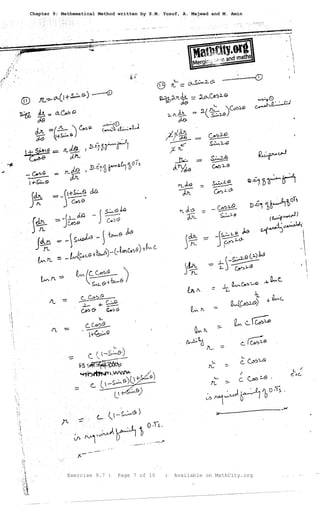 Chapter 9: Mathematical Method written by S.M. Yusuf, A. Majeed and M. Amin
MathCity.org
Merging and maths
⑪ r = a(1+Sinθ) —①
dr/dθ = a Cosθ
dr/dθ = (r/(1+Sinθ)) Cosθ
(1+Sinθ)/Cosθ = r dθ/dr
-Cosθ/(1+Sinθ) = r dθ/dr
∫dr/r = -∫(1+Sinθ)/Cosθ dθ
∫dr/r = -∫1/Cosθ dθ - ∫Sinθ/Cosθ dθ
∫dr/r = -∫Secθ dθ - ∫tanθ dθ
ln r = -ln(Secθ+tanθ)-(-lnCosθ)+ln c
ln r = ln(c Cosθ/(Secθ+tanθ))
r = c Cosθ/(1/Cosθ + Sinθ/Cosθ)
r = c Cos²θ/(1+Sinθ)
= c (1-Sin²θ)/(1+Sinθ)
= c (1-Sinθ)(1+Sinθ)/(1+Sinθ)
r = c (1-Sinθ)
is required family of O.Ts.
⑫ r² = a Sin2θ —①
2r dr/dθ = 2a Cos2θ
2r dr/dθ = 2(r²/Sin2θ) Cos2θ
Reciprocal
r dθ/dr = Sin2θ/Cos2θ
r dθ/dr = -Cos2θ/Sin2θ
(Reciprocal)
∫dr/r = -∫Sin2θ/Cos2θ dθ
∫dr/r = ½∫-Sin2θ(2)dθ/Cos2θ
ln r = ½ ln Cos2θ + ln c
ln r = ln(Cos2θ)^½ + ln c
ln r = ln c√Cos2θ
r = c√Cos2θ
r² = c² Cos2θ
r² = c' Cos2θ
is required family of O.Ts.
Exercise 9.7 : Page 7 of 10 : Available on MathCity.org